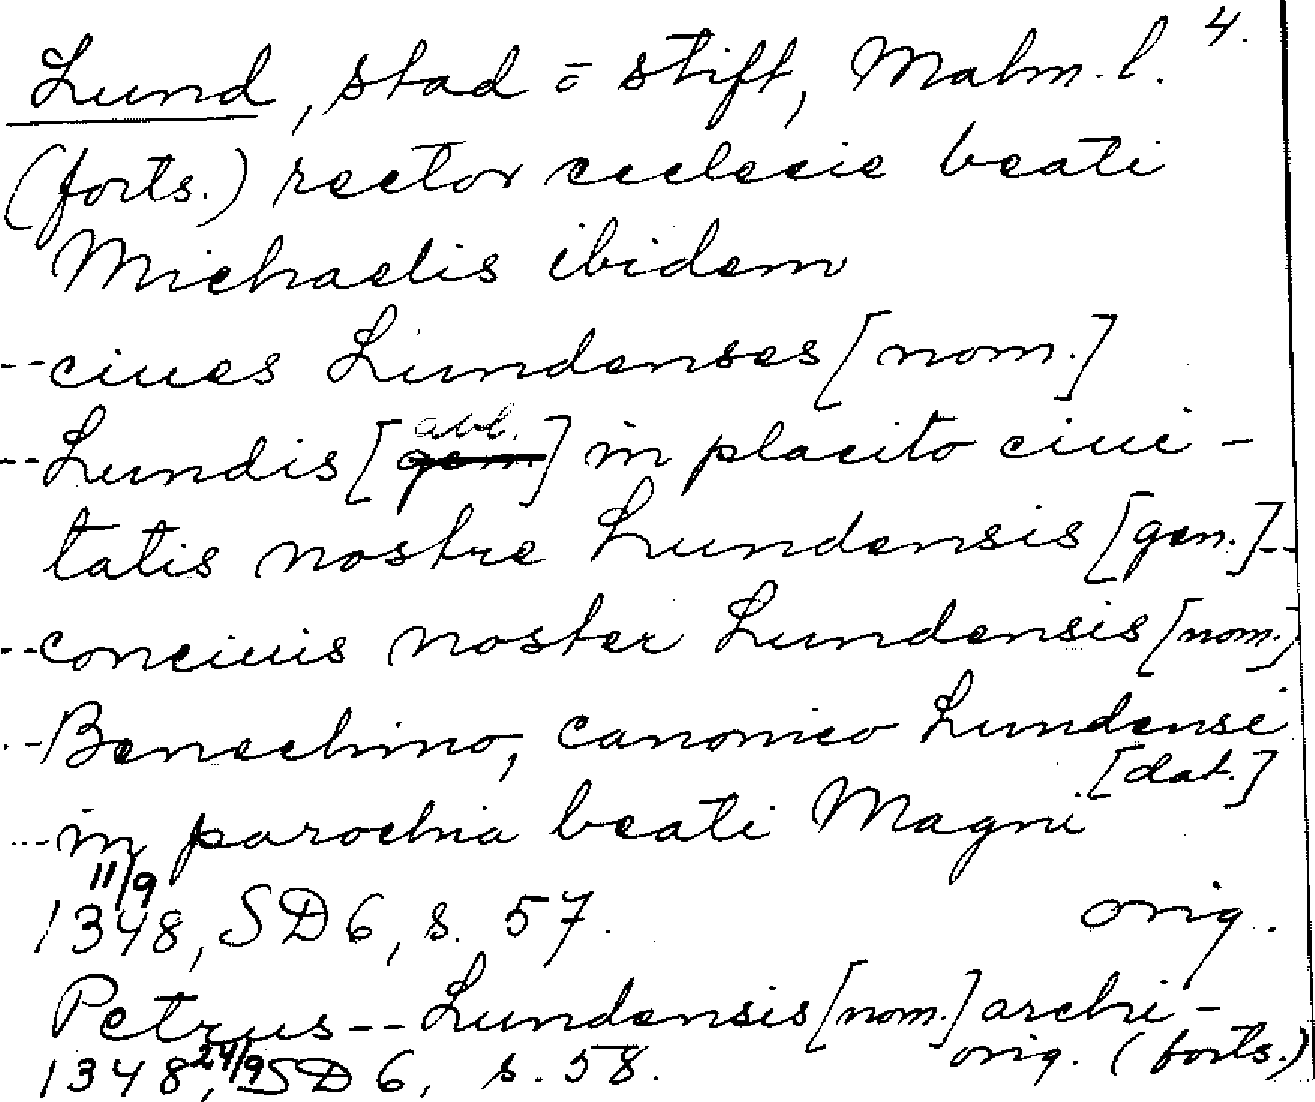 4.
Lund, stad o stift, Malm. l.
(forts.) rector ecclecie beati
Michaelis ibidem
--ciues Lundenses [nom.]
--Lundis [abl.] in placito ciui-
tatis nostre Lundensis [gen.]--
--conciuis noster Lundensis [nom.]
--Benechino, canonico Lundensi
[dat.]
--in parochia beati Magni
11/9
1348, SD 6, s. 57. orig.
Petrus -- Lundensis [nom.] archi-
1348, 24/9 SD 6, s. 58. orig. (forts.)